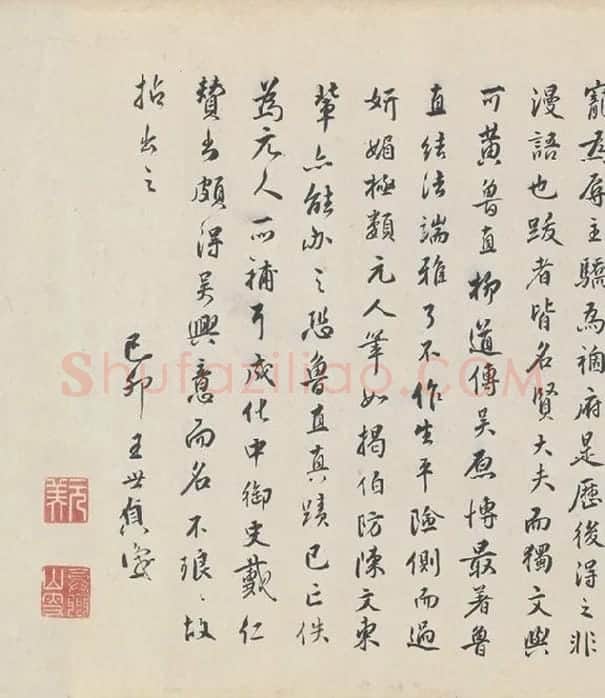 寵為辱主驕為禍府是歷後得之非
漫語也跋者皆名賢大夫而獨文與
可黃魯直柳道傳吳原博最著魯
直結法端雅了不作生平險側而過
妍媚極類元人筆如揭伯防陳文東
輩亦能办之恐魯直真蹟已亡佚
為元人所補耳成化中御史戴仁
贊書頗得吳興意而名不琅〻故
拈出之
己卯王世貞識
元美
Shufaziliao.COM